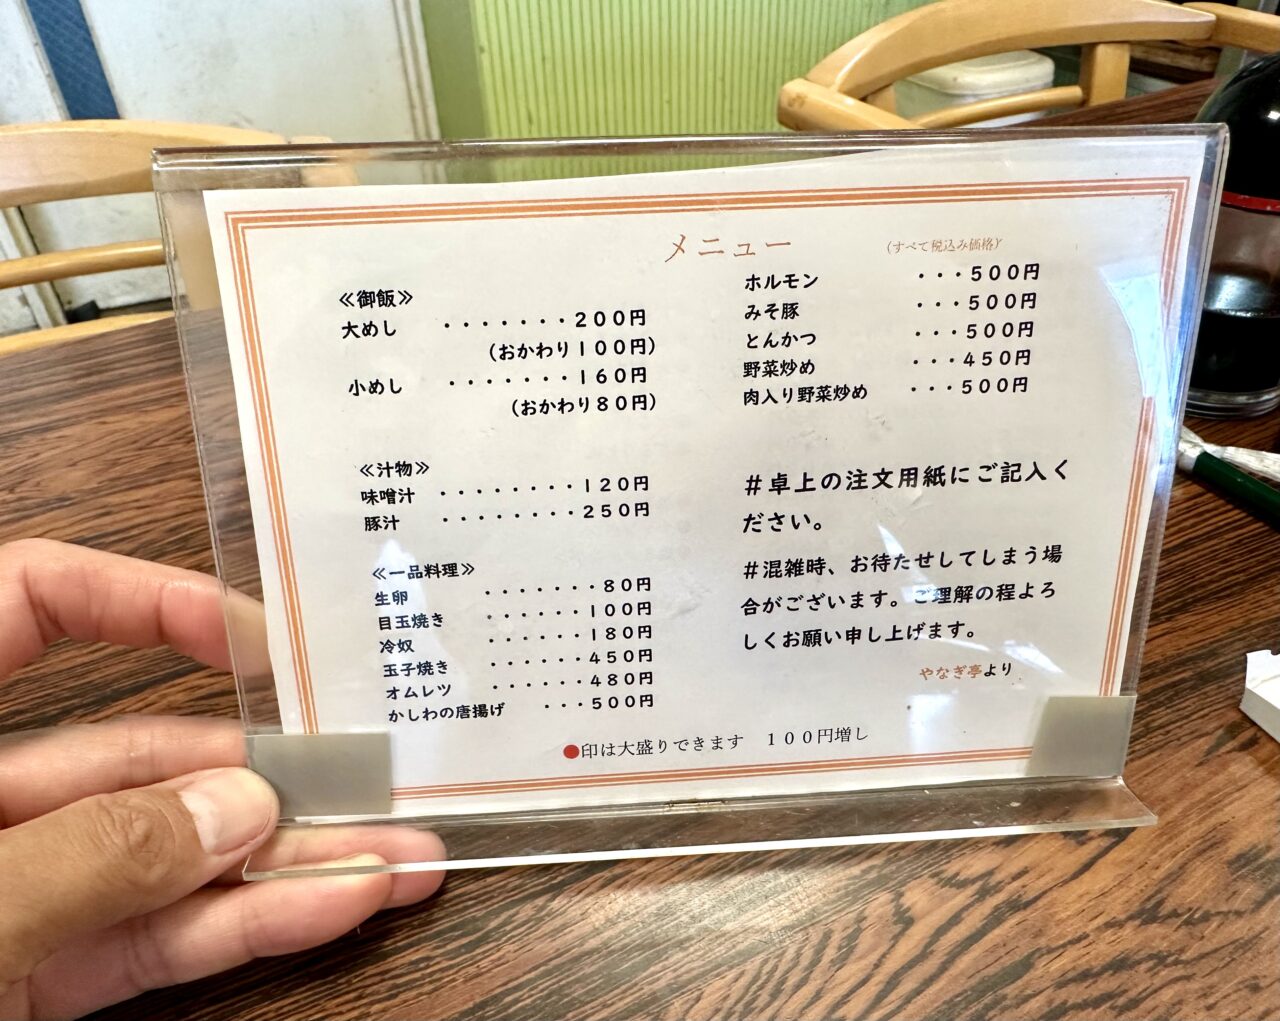 メニュー
(すべて税込み価格)
≪御飯≫
大めし ・・・・・・・200円
(おかわり100円)
小めし ・・・・・・・160円
(おかわり80円)
≪汁物≫
味噌汁 ・・・・・・・・120円
豚汁 ・・・・・・・・250円
≪一品料理≫
生卵 ・・・・・・80円
目玉焼き ・・・・・・100円
冷奴 ・・・・・・180円
玉子焼き ・・・・・・450円
オムレツ ・・・・・・480円
かしわの唐揚げ ・・・500円
ホルモン ・・・500円
みそ豚 ・・・500円
とんかつ ・・・500円
野菜炒め ・・・450円
肉入り野菜炒め ・・・500円
#卓上の注文用紙にご記入く
ださい。
#混雑時、お待たせしてしまう場
合がございます。ご理解の程よろ
しくお願い申し上げます。
やなぎ亭より
●印は大盛りできます 100円増し